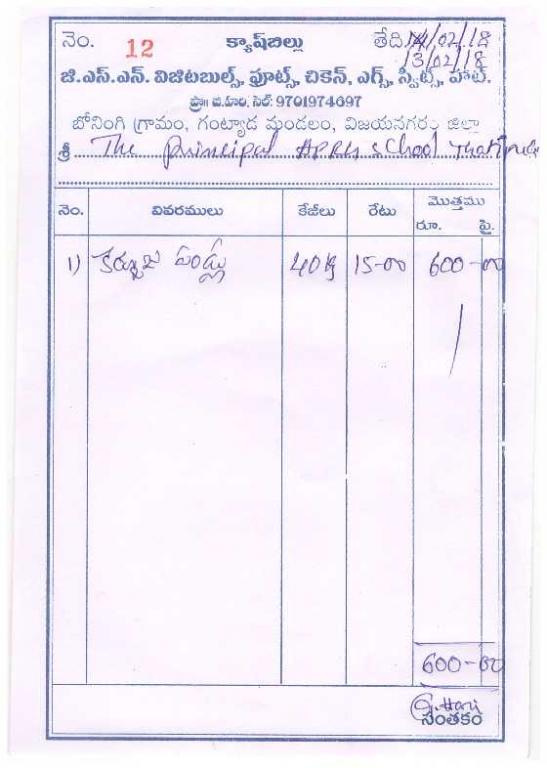 నెం. 12 క్యాష్‌బిల్లు తేది. 14/02/18
13/02/18
జి.ఎస్.ఎన్. విజిటబుల్స్, ఫ్రూట్స్, చికెన్, ఎగ్స్, స్వీట్స్, హాట్.
ప్రొ॥ జి.హరి, సెల్: 9701974697
బోనంగి గ్రామం, గంట్యాడ మండలం, విజయనగరం జిల్లా
శ్రీ The principal APRES school Thatipudi
నెం. వివరములు కేజీలు రేటు మొత్తము
రూ. పై.
1) కర్బుజ పండ్లు 40 kg 15-00 600-00
600-00
G. Hari
సంతకం